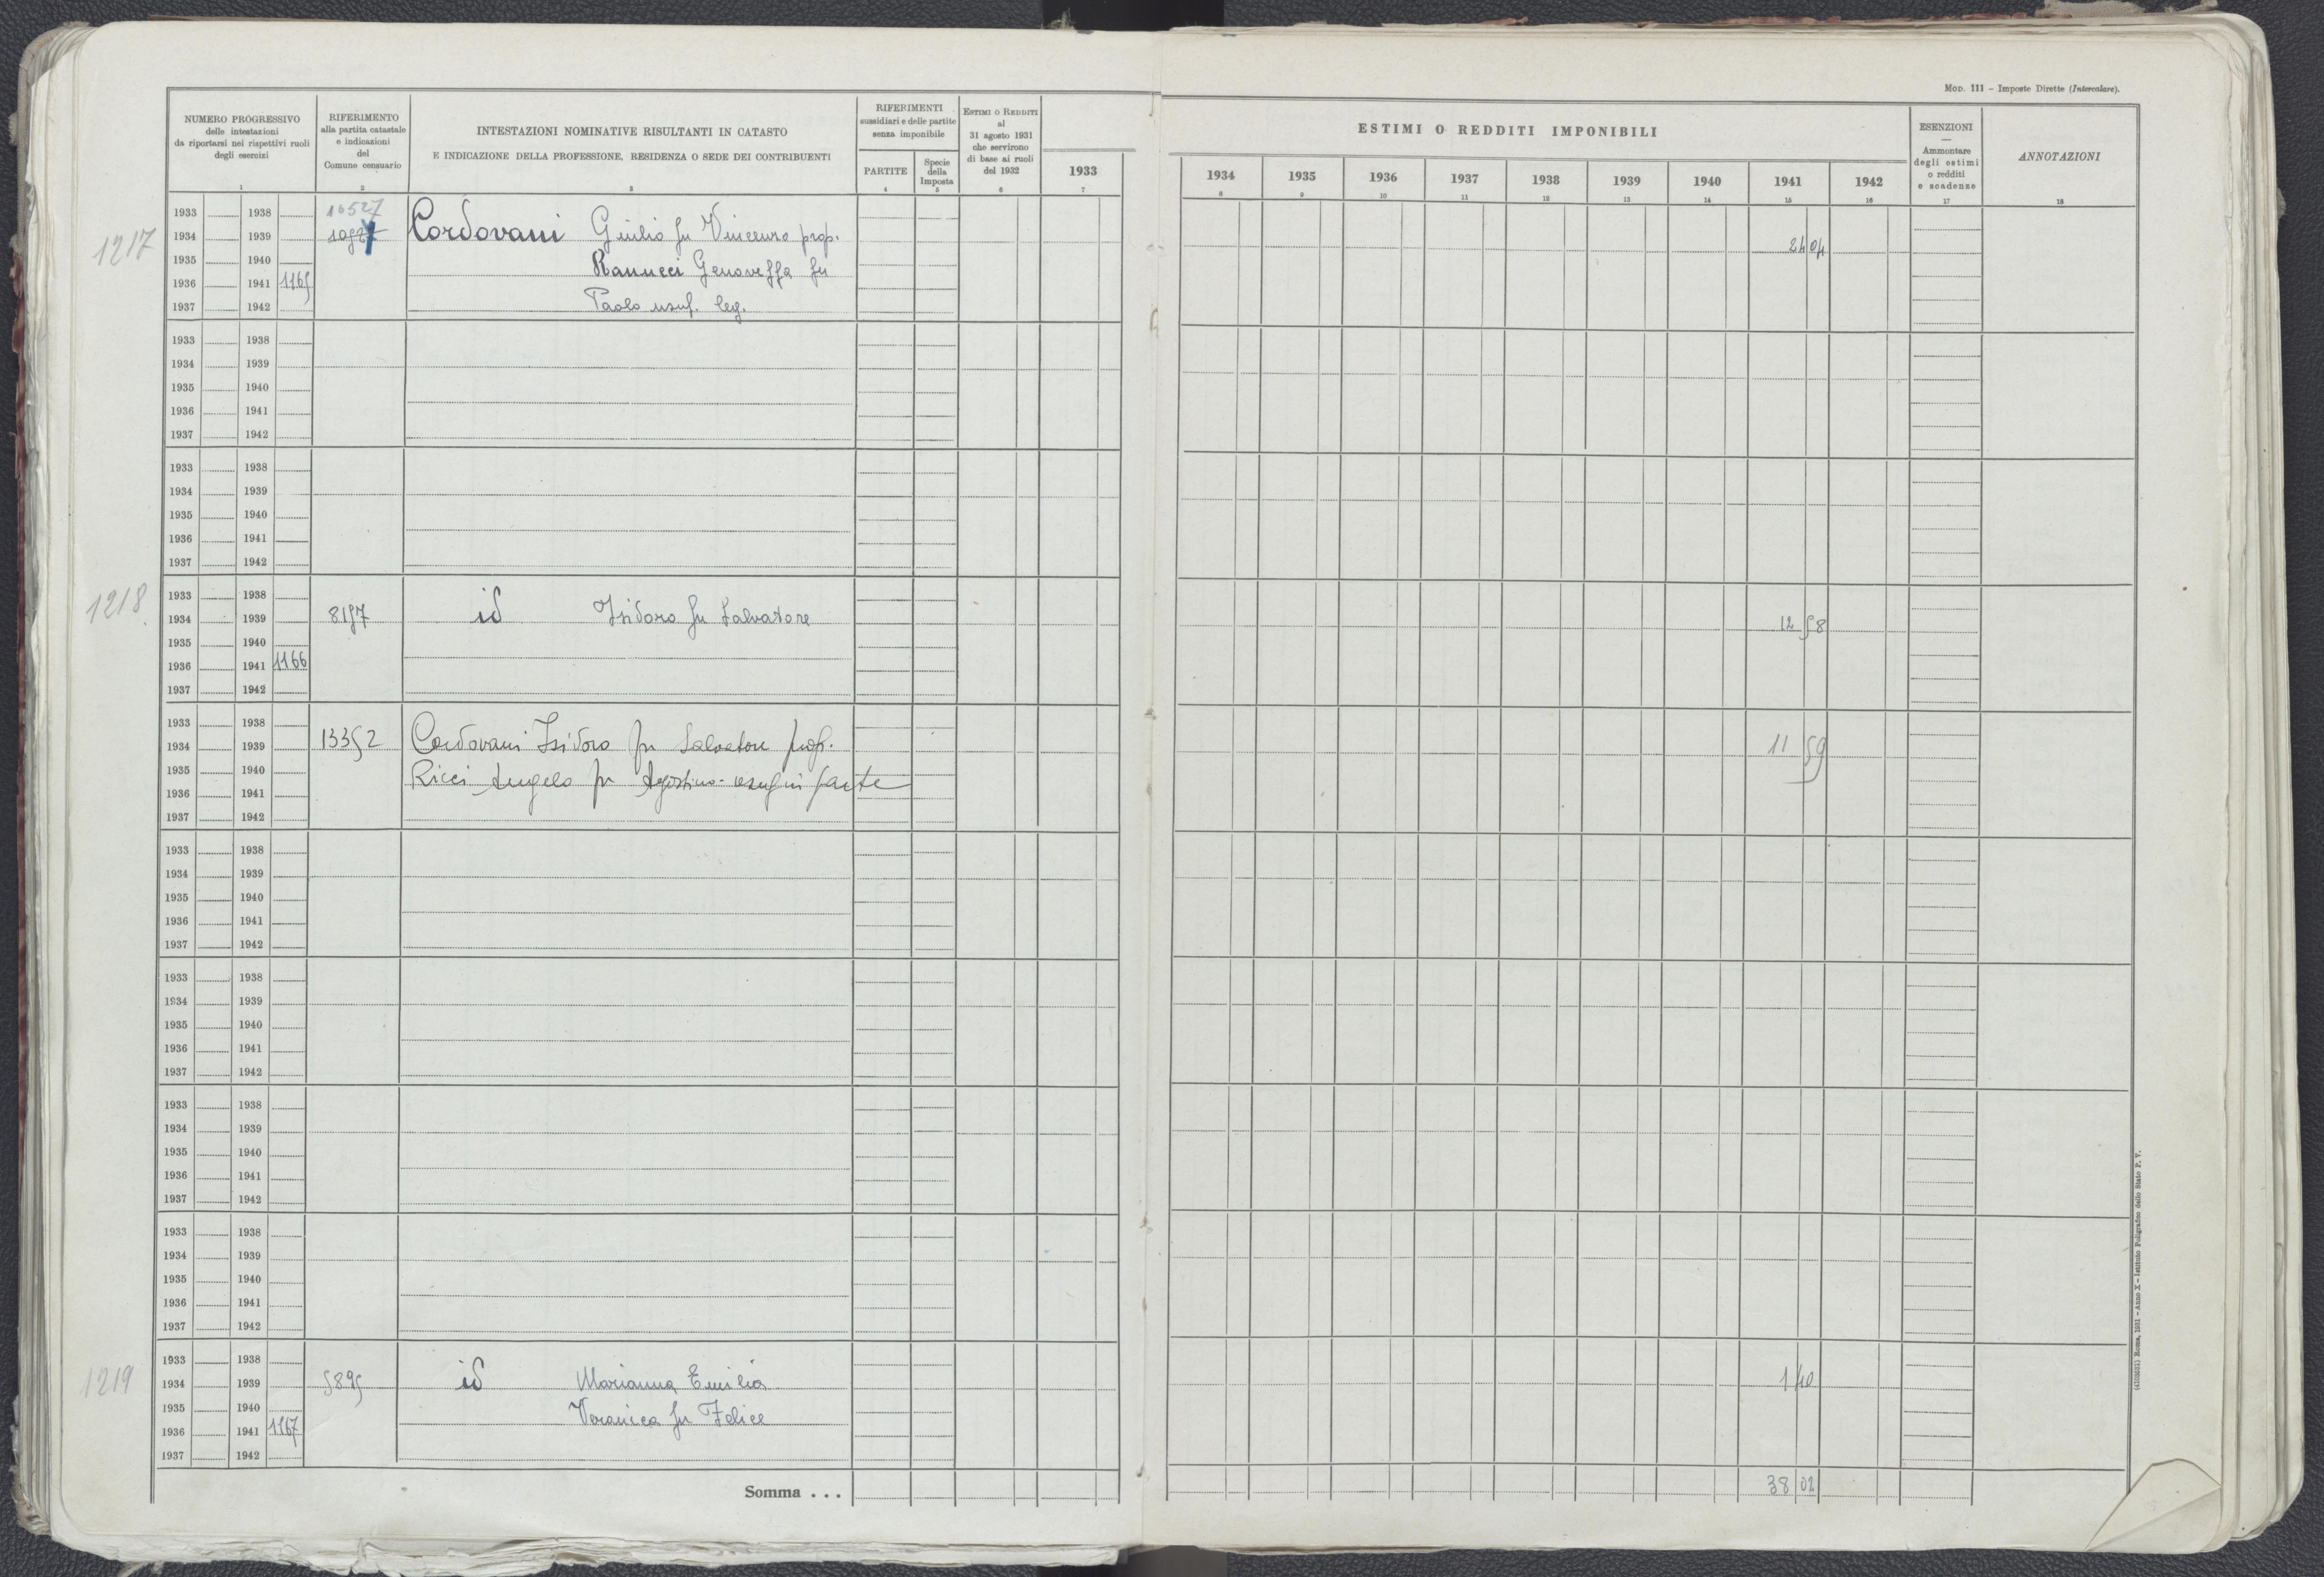 Mod. 111 – Imposte Dirette (Intercalare).
NUMERO PROGRESSIVO
delle intestazioni
da riportarsi nei rispettivi ruoli
degli esercizi
1
RIFERIMENTO
alla partita catastale
e indicazioni
del
Comune censuario
2
INTESTAZIONI NOMINATIVE RISULTANTI IN CATASTO
E INDICAZIONE DELLA PROFESSIONE, RESIDENZA O SEDE DEI CONTRIBUENTI
3
RIFERIMENTI
sussidiari e delle partite
senza imponibile
PARTITE
4
Specie
della
Imposta
5
ESTIMI O REDDITI
al
31 agosto 1931
che servirono
di base ai ruoli
del 1932
6
1933
7
ESTIMI O REDDITI IMPONIBILI
1934 1935 1936 1937 1938 1939 1940 1941 1942
8 9 10 11 12 13 14 15 16
ESENZIONI
—
Ammontare
degli estimi
o redditi
e scadenze
17
ANNOTAZIONI
18
1933 1938 10527
1217 1934 1939 Cordovani Giulio fu Vincenzo prop. 24 04
1935 1940 Ranucci Genoveffa fu
1936 1941 1165
1937 1942 Paolo usuf. leg.
1933 1938
1934 1939
1935 1940
1936 1941
1937 1942
1933 1938
1934 1939
1935 1940
1936 1941
1937 1942
1933 1938
1218 1934 1939 8157 id Isidoro fu Salvatore 12 58
1935 1940
1936 1941 1166
1937 1942
1933 1938
1934 1939 13352 Cordovani Isidoro fu Salvatore prop. 11 59
1935 1940 Ricci Angelo fu Agostino - usuf in parte
1936 1941
1937 1942
1933 1938
1934 1939
1935 1940
1936 1941
1937 1942
1933 1938
1934 1939
1935 1940
1936 1941
1937 1942
1933 1938
1934 1939
1935 1940
1936 1941
1937 1942
1933 1938
1934 1939
1935 1940
1936 1941
1937 1942
1933 1938
1219 1934 1939 5895 id Marianna Emilia 1 40
1935 1940 Veronica fu Felice
1936 1941 1167
1937 1942
Somma . . . 38 02
(4103031) Roma, 1931 – Anno X – Istituto Poligrafico dello Stato P. V.